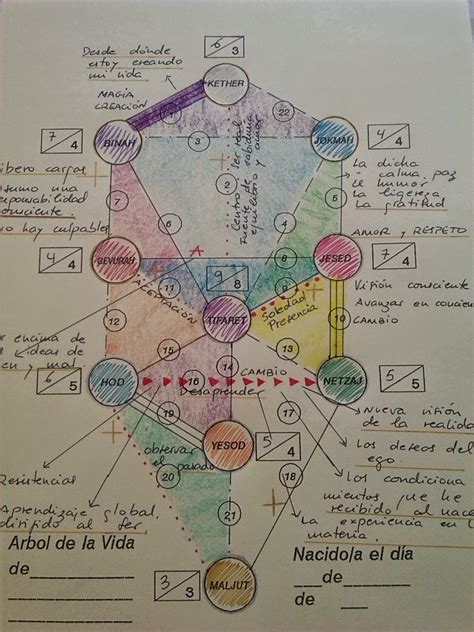 Desde dónde
estoy creando
mi vida
6/3
KETHER
MAGIA
CREACIÓN
1
22
7/4
BINAH
3
Centro, Ser real
Fuente de sabiduría
equilibrio y amor
JOKMAH
4/4
2
libero cargas
asumo una
responsabilidad
consciente
no hay culpables
La dicha
calma, paz
El humor
La ligereza
La gratitud
7
4
5
AMOR Y RESPETO
A
7/4
GEVURAH
9/8
JESED
7/4
11
8
9
ACEPTACIÓN
Visión consciente
Avanzar en concien
CAMBIO
TIFARET
Soledad
Presencia
10
12
encima de
ideas de
en y mal
15
13
14
CAMBIO
6/5
HOD
16
NETZAJ
5/5
Desaprender
19
17
Nueva visión
de la realida
YESOD
5/4
observar
el pasado
Los deseos del
ego.
Resistencias
20
18
Los condiciona
mientos que he
recibido al nace
Aprendizaje global,
dirigido al ser
21
La experiencia en l
materia.
Arbol de la Vida
Nacido/a el día
de
de
3/3
MALJUT
de